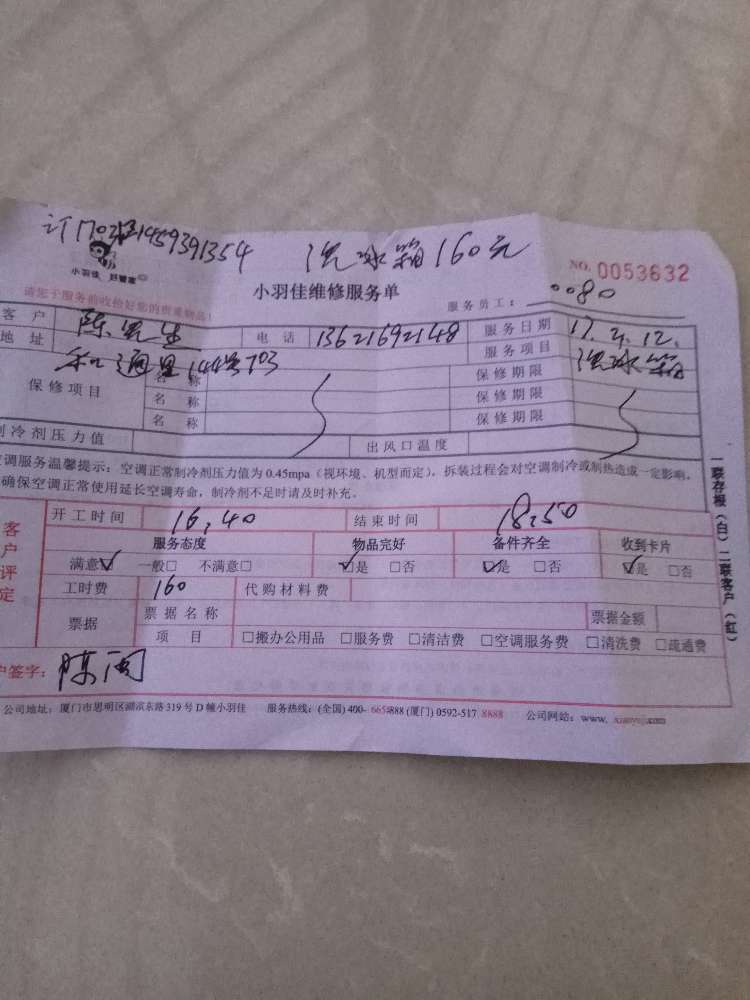 洗冰箱160元
小羽佳 好管家
NO. 0053632
小羽佳维修服务单
请您于服务前收拾好您的贵重物品!
服务员工: 0080
客户 陈先生 电话 13621692148 服务日期 17.2.12.
地址 和通里144号703 服务项目 洗冰箱
保修项目 名称 保修期限
名称 保修期限
名称 保修期限
制冷剂压力值 出风口温度
空调服务温馨提示:空调正常制冷剂压力值为0.45mpa(视环境、机型而定),拆装过程会对空调制冷或制热造成一定影响,
确保空调正常使用延长空调寿命,制冷剂不足时请及时补充。
开工时间 16.40 结束时间 18.50
客户评定
服务态度 物品完好 备件齐全 收到卡片
满意☑ 一般□ 不满意□ ☑是 □否 ☑是 □否 ☑是 □否
工时费 160 代购材料费
票据 票据名称 票据金额
项目 □搬办公用品 □服务费 □清洁费 □空调服务费 □清洗费 □疏通费
户签字:
公司地址:厦门市思明区湖滨东路319号D幢小羽佳 服务热线:(全国)400-6654888(厦门)0592-517 8888 公司网站:www.
一联存根(白)二联客户(红)